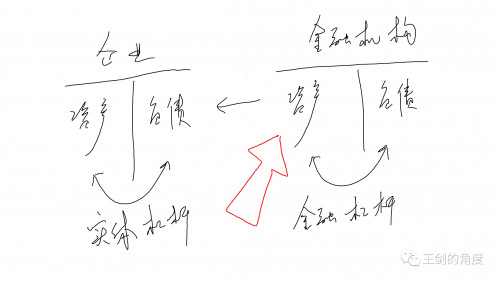 企业
金融机构
资产 负债
资产 负债
实体杠杆
金融杠杆
王剑的角度